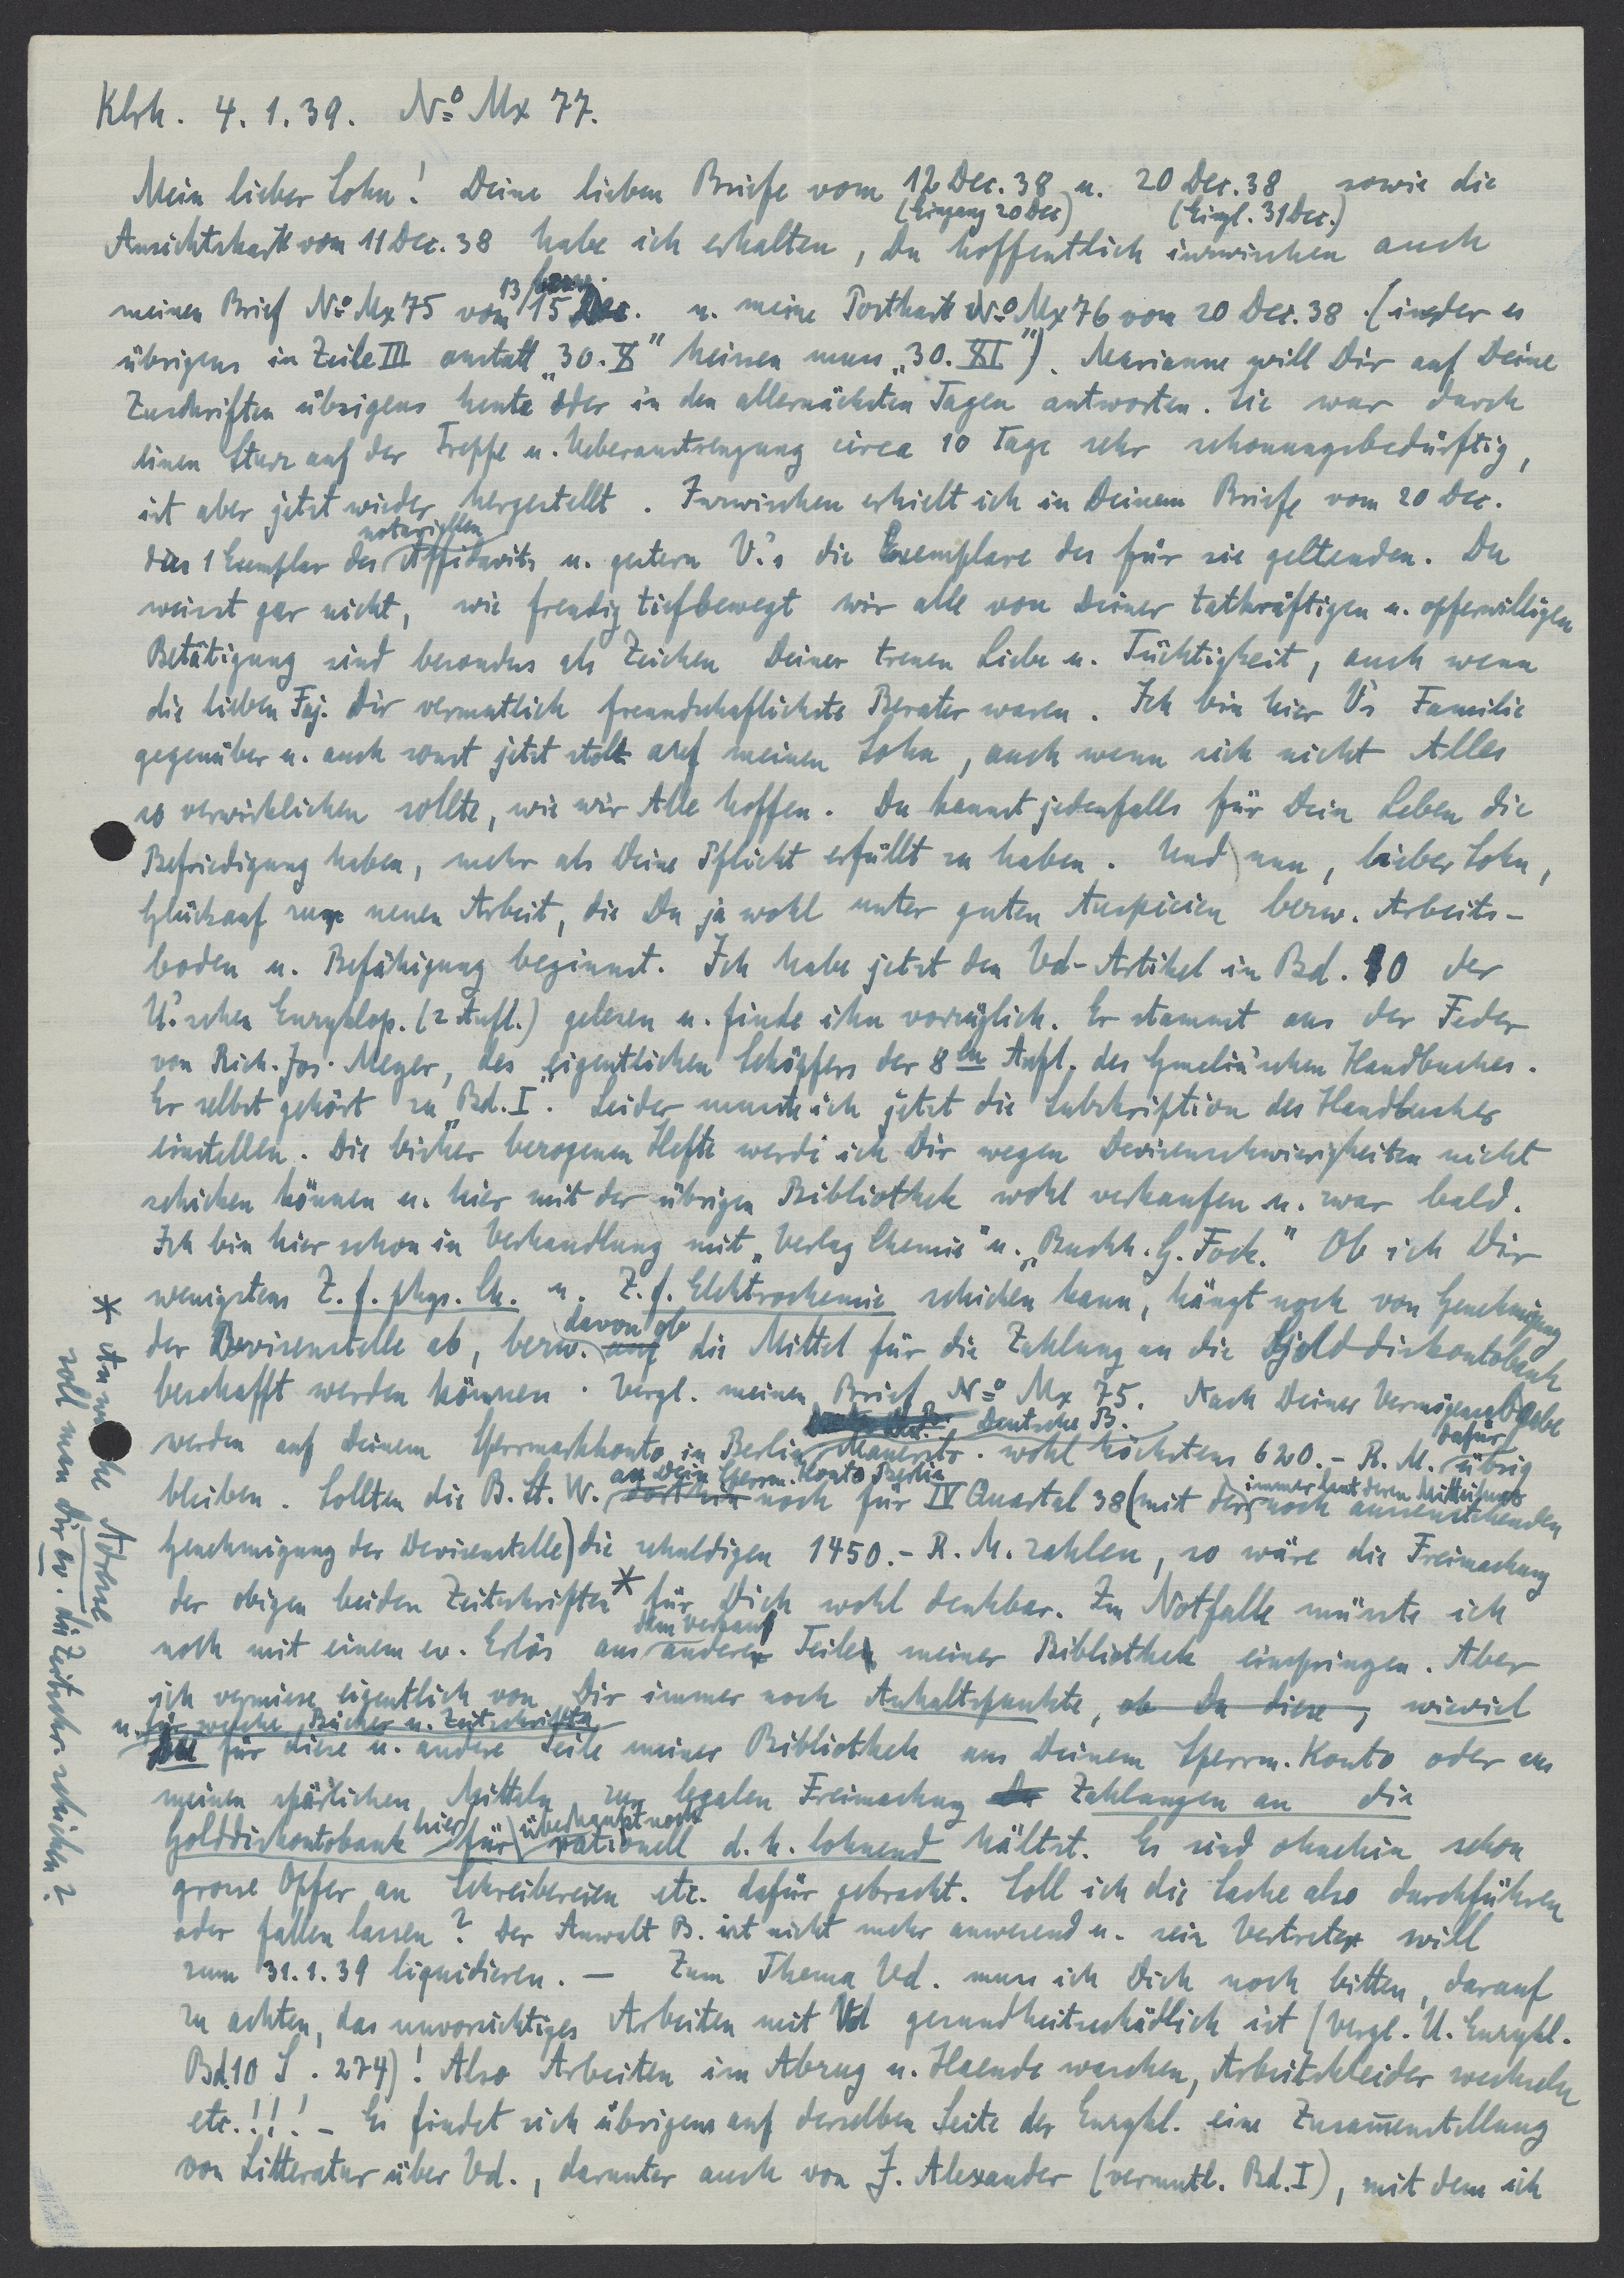 Klrh. 4.1.39. No Mx 77.
Mein lieber Sohn! Deine lieben Briefe vom 12 Dec. 38 u. 20 Dec. 38 sowie die
(Eingang 20 Dec) (Eingl. 31 Dec.)
Ansichtskart vom 11 Dec. 38 habe ich erhalten, Du hoffentlich inzwischen auch
13 bezw.
meinen Brief No Mx 75 vom 15 Dec. u. meine Postkart No Mx 76 vom 20 Dec. 38. (in der es
übrigens in Zeile III anstatt „30. X" heissen muss „30. XI"). Marianne will Dir auf Deine
Zuschriften übrigens heute oder in den allernächsten Tagen antworten. Sie war durch
einen Sturz auf der Treppe u. Ueberanstrengung circa 10 Tage sehr schonungsbedürftig,
ist aber jetzt wieder hergestellt. Inzwischen erhielt ich in Deinem Briefe vom 20 Dec.
notariellen
das 1 Exemplar des Affidavits u. gestern V.'s die Exemplare des für sie geltenden. Du
weisst gar nicht, wie freudig tiefbewegt wir alle von Deiner tatkräftigen u. opferwilligen
Betätigung sind besonders als Zeichen Deiner treuen Liebe u. Tüchtigkeit, auch wenn
die lieben Faj. Dir vermutlich freundschaftlichste Berater waren. Ich bin hier V's Familie
gegenüber u. auch sonst jetzt stolz auf meinen Sohn, auch wenn sich nicht Alles
so verwirklichen sollte, wie wir Alle hoffen. Du kannst jedenfalls für Dein Leben die
Befriedigung haben, mehr als Deine Pflicht erfüllt zu haben. Und nun, lieber Sohn,
Glückauf zur neuen Arbeit, die Du ja wohl unter guten Auspicien bezw. Arbeits-
boden u. Befähigung beginnst. Ich habe jetzt den Vd-Artikel in Bd. 10 der
U.'schen Enzyklop. (2 Aufl.) gelesen u. finde ihn vorzüglich. Er stammt aus der Feder
von Rich. Jos. Meyer, des eigentlichen Schöpfers der 8ten Aufl. des Gmelin'schen Handbuches.
Er selbst gehört zu „Bd. I". Leider musste ich jetzt die Subskription des Handbuches
einstellen. Die bisher bezogenen Hefte werde ich Dir wegen Devisenschwierigkeiten nicht
schicken können u. hier mit der übrigen Bibliothek wohl verkaufen u. zwar bald.
Ich bin hier schon in Verhandlung mit „Verlag Chemie" u. „Buchh. G. Fock." Ob ich Dir
wenigstens Z. f. phys. Ch. u. Z. f. Elektrochemie schicken kann, hängt noch von Genehmigung
davon ob
der Devisenstelle ab, bezw. auf die Mittel für die Zahlung an die Golddiskontobank
beschafft werden können. Vergl. meinen Brief No Mx 75. Nach Deiner Vermögensabgabe
Deutsche B. dafür
werden auf Deinem Sperrmarkkonto in Berlin Mauerstr. wohl höchstens 620.- R. M. übrig
an Dein Sperrm. Konto Berlin immer laut deren Mitteilung
bleiben. Sollten die B. St. W. dorthin noch für IV Quartal 38 (mit der noch ausstehenden
Genehmigung der Devisenstelle) die schuldigen 1450.- R. M. zahlen, so wäre die Freimachung
der obigen beiden Zeitschriften * für Dich wohl denkbar. Im Notfalle müsste ich
dem Verkauf
noch mit einem ev. Erlös aus anderer Teilen meiner Bibliothek einspringen. Aber
ich vermisse eigentlich von Dir immer noch Anhaltspunkte, ob Du diese, wieviel
u. für welche Bücher u. Zeitschriften
Du für diese u. andere Teile meiner Bibliothek aus Deinem Sperrm. Konto oder aus
meinen spärlichen Mitteln zur legalen Freimachung Du Zahlungen an die
hier überhaupt noch
Golddiskontobank für rationell d. h. lohnend hältst. Es sind ohnehin schon
grosse Opfer an Schreibereien etc. dafür gebracht. Soll ich die Sache also durchführen
oder fallen lassen? Der Anwalt B. ist nicht mehr anwesend u. sein Vertreter will
zum 31.1.39 liquidieren. — Zum Thema Vd. muss ich Dich noch bitten, darauf
zu achten, das unvorsichtiges Arbeiten mit Vd gesundheitsschädlich ist (Vergl. U. Enzykl.
Bd. 10 S. 274)! Also Arbeiten im Abzug u. Haende waschen, Arbeitskleider wechseln
etc.!!! - Es findet sich übrigens auf derselben Seite der Enzykl. eine Zusam̄enstellung
von Litteratur über Vd., darunter auch von J. Alexander (vermutl. Bd. I), mit dem ich
* An welche Adresse
soll man dir ev. die Zeitschr. schicken?